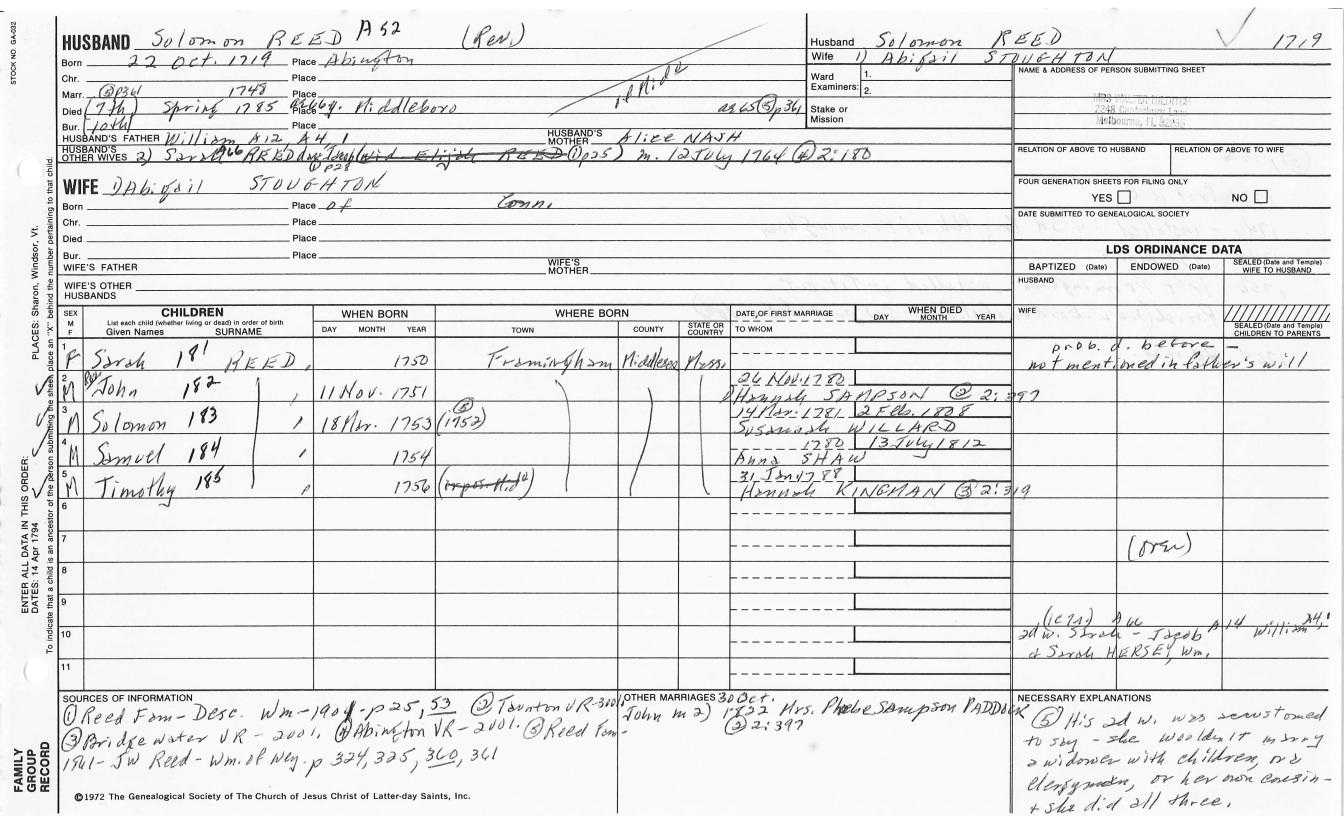 STOCK NO. GA-032
HUSBAND Solomon REED A52 (Rev.)
Born 22 Oct. 1719 Place Abington
Chr. Place
Marr. ⑤p361 1748 Place
Died (7th) Spring 1785 Place Middleboro aged 65 ⑤ p361
Bur. 10th Place
HUSBAND'S FATHER William A12, A4, 1 HUSBAND'S MOTHER Alice NASH
HUSBAND'S OTHER WIVES 2) Sarah A66 REED (Wid Elijah REED ① p25) m. 12 July 1764 ④ 2:180
① p28
Husband Solomon REED 1719
Wife 1) Abigail STOUGHTON
Ward 1.
Examiners: 2.
Stake or
Mission
NAME & ADDRESS OF PERSON SUBMITTING SHEET
RELATION OF ABOVE TO HUSBAND RELATION OF ABOVE TO WIFE
FOUR GENERATION SHEETS FOR FILING ONLY
YES NO
DATE SUBMITTED TO GENEALOGICAL SOCIETY
WIFE 1) Abigail STOUGHTON
Born Place of Conn.
Chr. Place
Died Place
Bur. Place
WIFE'S FATHER WIFE'S MOTHER
WIFE'S OTHER HUSBANDS
LDS ORDINANCE DATA
BAPTIZED (Date) ENDOWED (Date) SEALED (Date and Temple) WIFE TO HUSBAND
HUSBAND
WIFE
SEALED (Date and Temple) CHILDREN TO PARENTS
SEX M F
CHILDREN
List each child (whether living or dead) in order of birth
Given Names SURNAME
WHEN BORN
DAY MONTH YEAR
WHERE BORN
TOWN COUNTY STATE OR COUNTRY
DATE OF FIRST MARRIAGE
TO WHOM
WHEN DIED
DAY MONTH YEAR
1 F Sarah 181 REED, 1750 Framingham Middlesex Mass.
prob. d. before -
not mentioned in father's will
2 M Rev. John 182 , 11 Nov. 1751 26 Nov. 1780
1) Hannah SAMPSON ② 2:397
3 M Solomon 183 , 18 Mar. 1753 (⑤ 1952) 14 Mar. 1781 2 Feb. 1808
Susannah WILLARD
4 M Samuel 184 , 1754 1780 13 July 1812
Anna SHAW
5 M Timothy 185 , 1756 31 Jan 1788
Hannah KINGMAN ③ 2:319
6
7
(over)
8
9
10
11
A66
2d w. Sarah - Jacob A14 William A4, 1
& Sarah HERSEY, Wm.
SOURCES OF INFORMATION
① Reed Fam - Desc. Wm - 1901 - p 25, 53 ② Taunton VR - 2001.
③ Bridgewater VR - 2001. ④ Abington VR - 2001. ⑤ Reed Fam -
1901 - JW Reed - Wm. of Wey. p 324, 325, 360, 361
©1972 The Genealogical Society of The Church of Jesus Christ of Latter-day Saints, Inc.
OTHER MARRIAGES 30 Oct.
John m 2) 1822 Mrs. Phebe Sampson PADDOCK
② 2:397
NECESSARY EXPLANATIONS
⑤ His 2d w. was accustomed
to say - she wouldn't marry
a widower with children, or a
clergyman, or her own cousin -
& she did all three.
ENTER ALL DATA IN THIS ORDER:
DATES: 14 Apr 1794 PLACES: Sharon, Windsor, Vt.
To indicate that a child is an ancestor of the person submitting the sheet, place an "X" behind the number pertaining to that child.
FAMILY
GROUP
RECORD